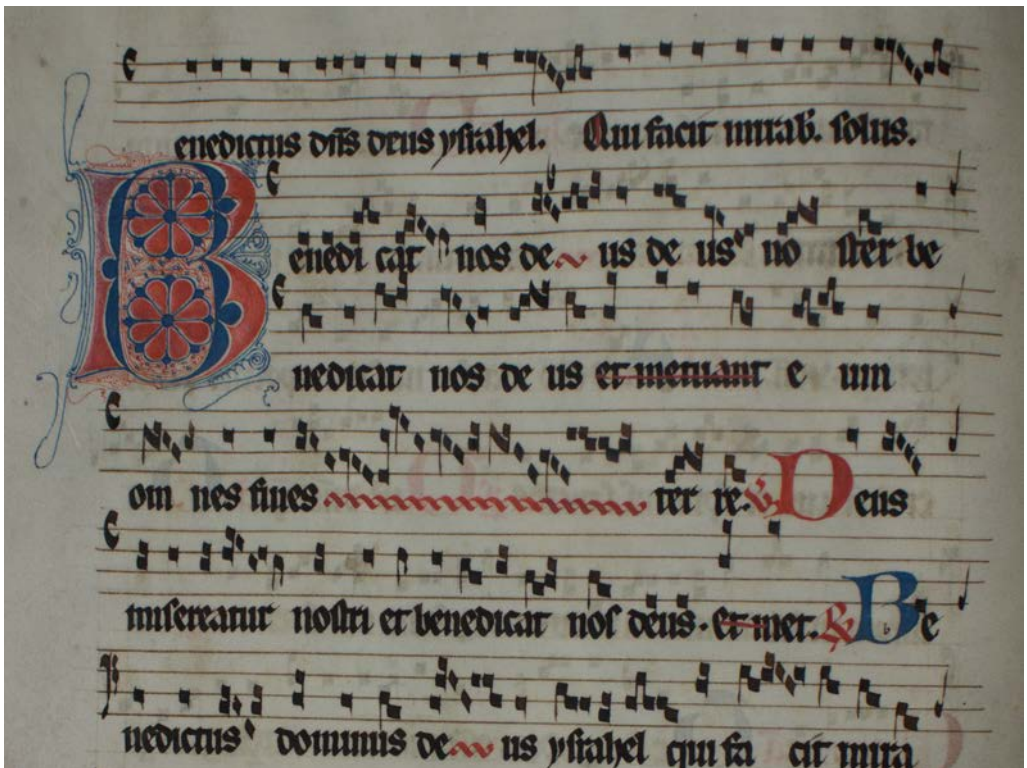 enedictus dns deus ysrahel. Qui facit mirab. solus.
Benedi cat nos de us de us no ster be
nedicat nos de us et metuant e um
om nes fines ter re. V Deus
misereatur nostri et benedicat nos deus. et met. R Be
nedictus dominus de us ysrahel qui fa cit mira